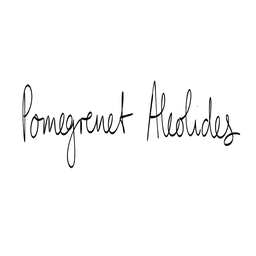 Pomegrenet Aleolides